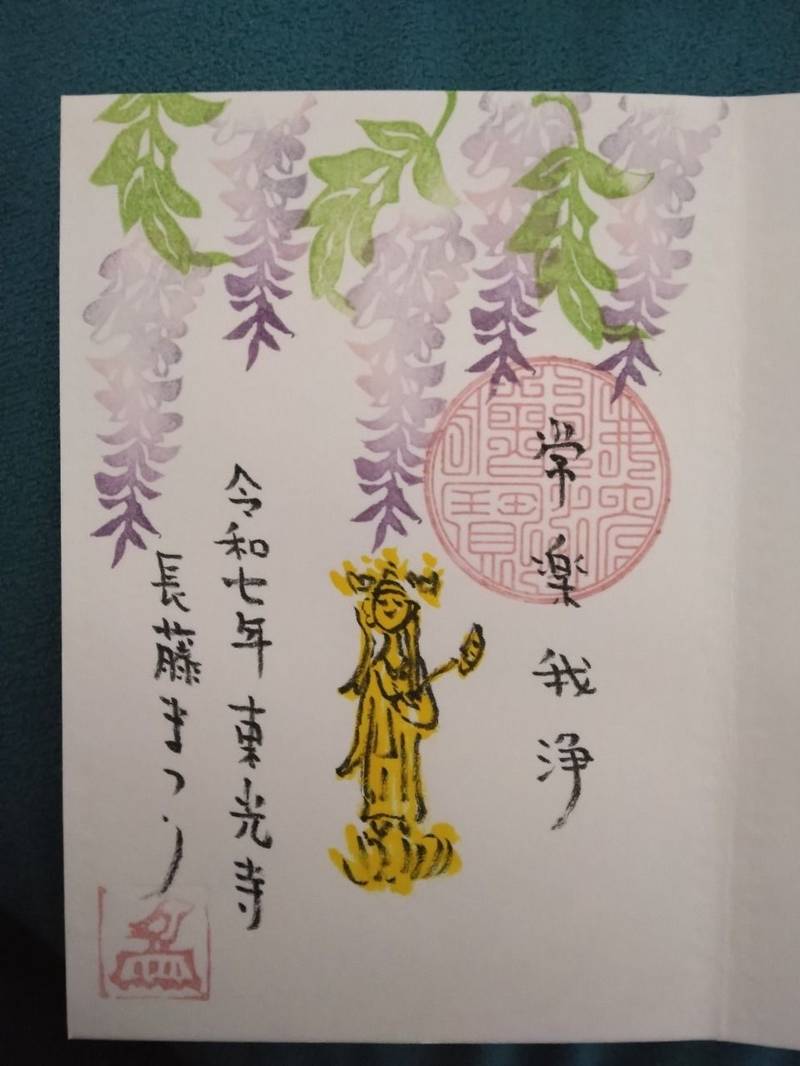 常楽我浄
令和七年 東光寺
長藤まつり